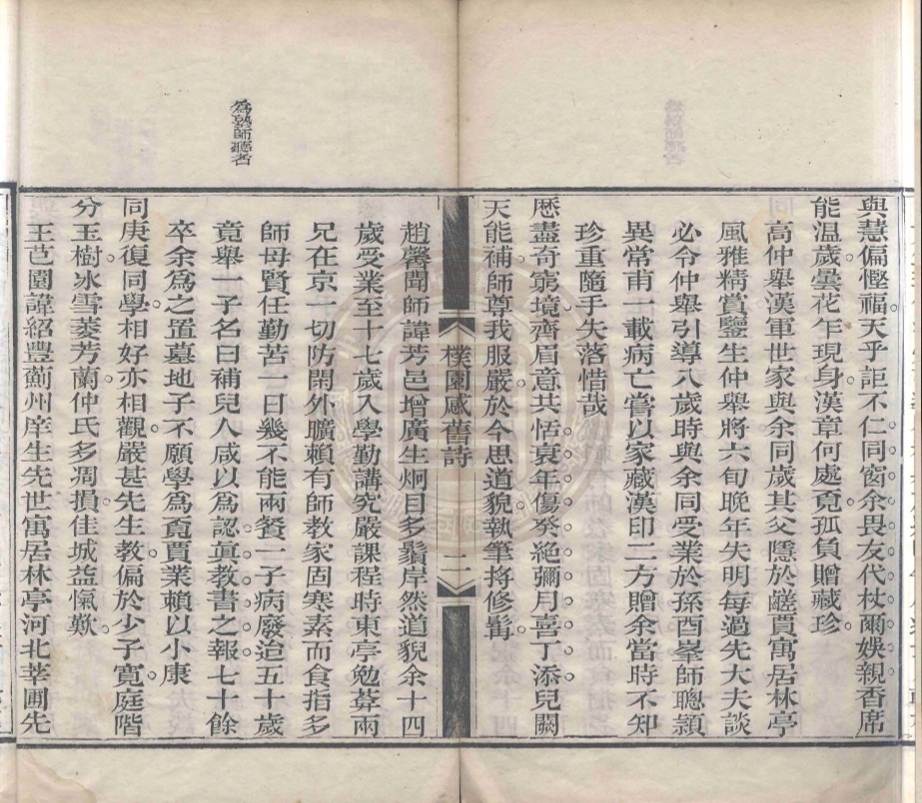 與慧偏慳福天乎詎不仁同窗余畏友代杖爾娛親香席
能溫歲曇花乍現身漢章何處覓孤負贈藏珍
高仲舉漢軍世家與余同歲其父隱於鹺賈寓居林亭
風雅精賞鑒生仲舉將六旬晚年失明每過先大夫談
必令仲舉引導八歲時與余同受業於孫酉峯師聰穎
異常甫一載病亡嘗以家藏漢印二方贈余當時不知
珍重隨手失落惜哉
歷盡奇窮境齊眉意共恬衰年傷癸絕彌月喜丁添兒闕
天能補師尊我服嚴於今思道貌執筆捋修髯
樸園感舊詩
二
趙馨聞師諱芳邑增廣生炯目多鬚岸然道貌余十四
歲受業至十七歲入學勤講究嚴課程時東亭勉葊兩
兄在京一切防閑外曠賴有師教家固寒素而食指多
師母賢任勤苦一日幾不能兩餐一子病廢迨五十歲
竟舉一子名曰補兒人咸以為認眞教書之報七十餘
卒余為之置墓地子不願學為覓賈業賴以小康
同庚復同學相好亦相觀嚴甚先生教偏於少子寬庭階
分玉樹冰雪萎芳蘭仲氏多凋損佳城益愾歎
王芑園諱紹豐薊州庠生先世寓居林亭河北莘圃先
為塾師聽者